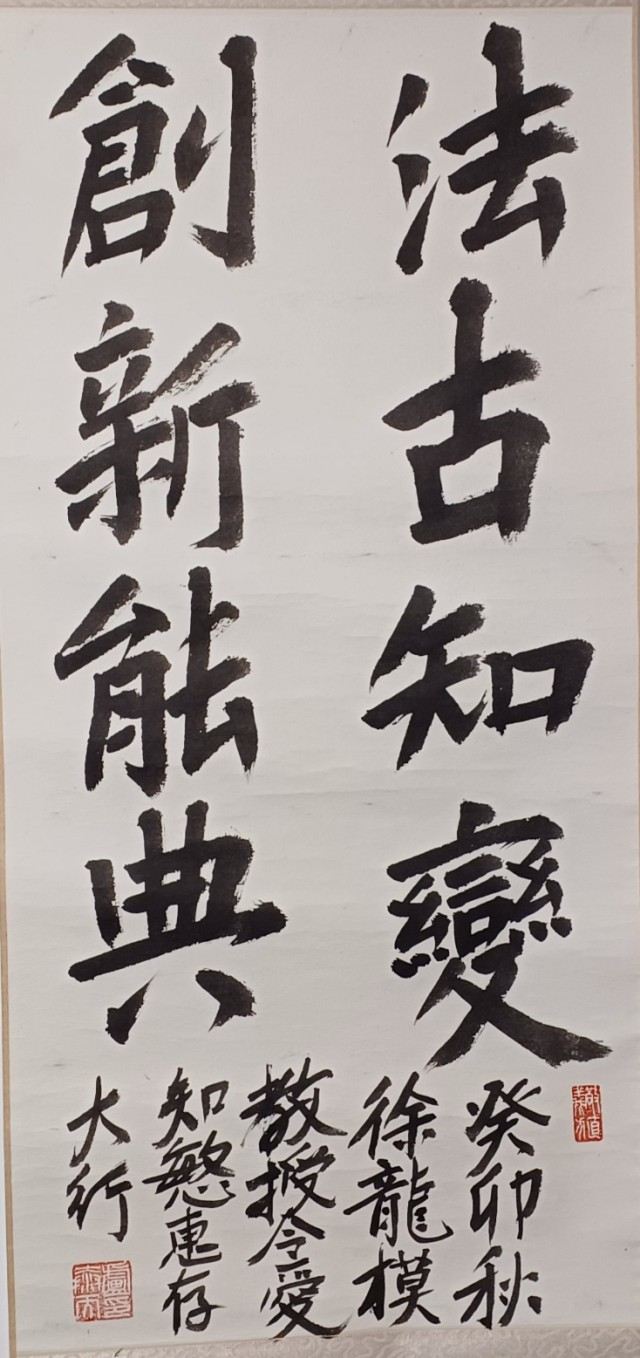 法古知變
創新能典
癸卯秋
徐龍模
教授令愛
知慜惠存
大行